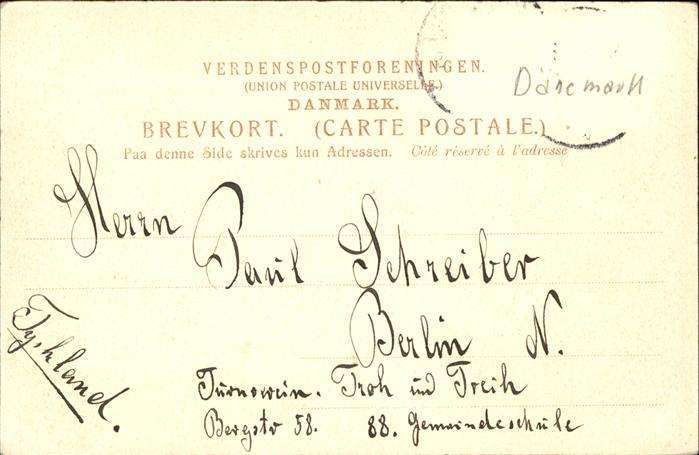 VERDENSPOSTFORENINGEN.
(UNION POSTALE UNIVERSELLE.)
DANMARK.
BREVKORT. (CARTE POSTALE.)
Paa denne Side skrives kun Adressen. Côté réservé à l'adresse
Dänemark
Herrn Paul Schreiber
Berlin N.
Tyskland.
Turnverein. Froh und Treih
Bergstr 58. 88. Gemeindeschule